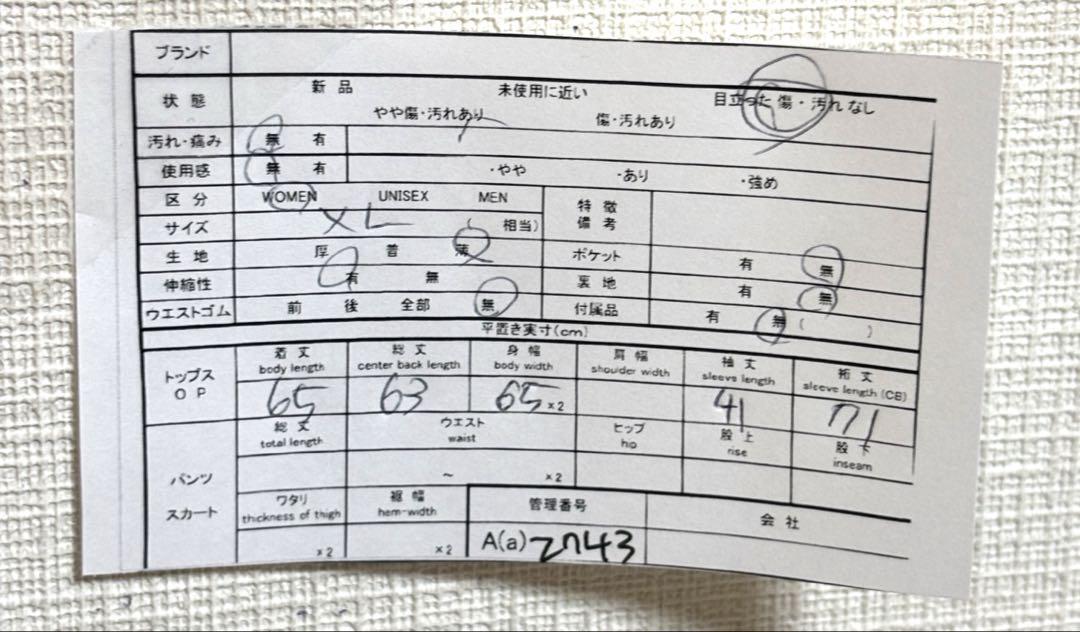 ブランド
状態 新品 未使用に近い 目立った傷・汚れなし
やや傷・汚れあり 傷・汚れあり
汚れ・痛み 無 有
使用感 無 有 ・やや ・あり ・強め
区分 WOMEN UNISEX MEN 特徴備考
サイズ XL ( 相当)
生地 厚 普 薄 ポケット 有 無
伸縮性 有 無 裏地 有 無
ウエストゴム 前 後 全部 無 付属品 有 無 ( )
平置き実寸(cm)
トップス OP
着丈 総丈 身幅 肩幅 袖丈 裄丈
body length center back length body width shoulder width sleeve length sleeve length (CB)
65 63 65 x2 41 71
総丈 ウエスト ヒップ 股上 股下
total length waist hip rise inseam
パンツ ~ x2
スカート
ワタリ 裾幅 管理番号 会社
thickness of thigh hem-width
x2 x2 A(a) 2743